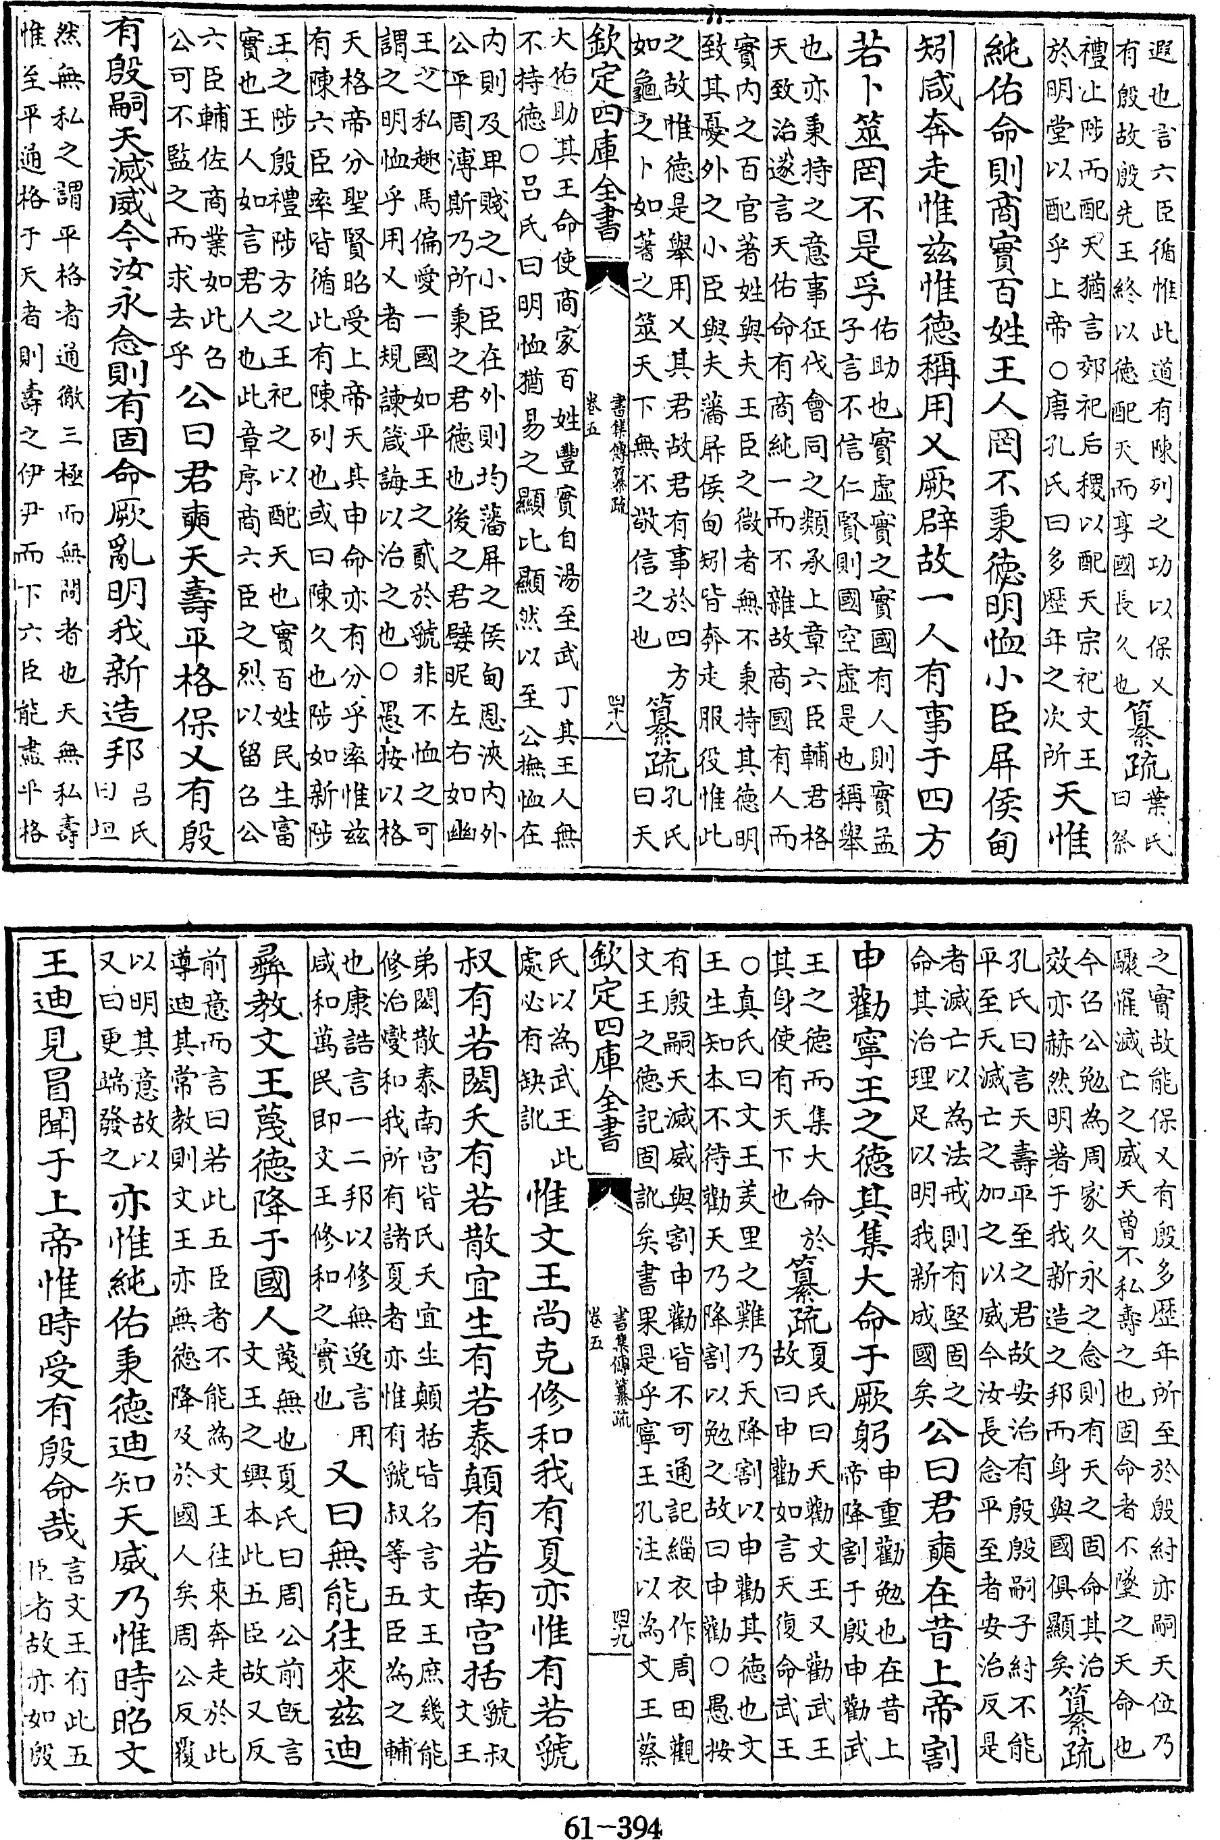 遐也言六臣循惟此道有陳列之功以保乂
有殷故殷先王終以德配天而享國長久也
纂疏
葉氏
曰祭
禮止陟而配天猶言郊祀后稷以配天宗祀文王
於明堂以配乎上帝○唐孔氏曰多歷年之次所
天惟
純佑命則商實百姓王人罔不秉德明恤小臣屏侯甸
矧咸奔走惟茲惟德稱用乂厥辟故一人有事于四方
若卜筮罔不是孚
佑助也實虛實之實國有人則實孟
子言不信仁賢則國空虛是也稱舉
也亦秉持之意事征伐會同之類承上章六臣輔君格
天致治遂言天佑命有商純一而不雜故商國有人而
實內之百官著姓與夫王臣之微者無不秉持其德明
致其憂外之小臣與夫藩屏侯甸矧皆奔走服役惟此
之故惟德是舉用乂其君故君有事於四方
如龜之卜如蓍之筮天下無不敬信之也
纂疏
孔氏
曰天
欽定四庫全書
書集傳纂疏
卷五
四十八
大佑助其王命使商家百姓豐實自湯至武丁其王人無
不持德○呂氏曰明恤猶易之顯比顯然以至公撫恤在
內則及卑賤之小臣在外則均藩屏之侯甸恩浹內外
公平周溥斯乃所秉之君德也後之君嬖昵左右如幽
王之私趣馬偏愛一國如平王之貳於虢非不恤之可
謂之明恤乎用乂者規諫箴誨以治之也○愚按以格
天格帝分聖賢昭受上帝天其申命亦有分乎率惟茲
有陳六臣率皆循此有陳列也或曰陳久也陟如新陟
王之陟殷禮陟方之王祀之以配天也實百姓民生富
實也王人如言君人也此章序商六臣之烈以留召公
六臣輔佐商業如此召
公可不監之而求去乎
公曰君奭天壽平格保乂有殷
有殷嗣天滅威今汝永念則有固命厥亂明我新造邦
呂氏
曰坦
然無私之謂平格者通徹三極而無間者也天無私壽
惟至平通格于天者則壽之伊尹而下六臣能盡平格
之實故能保乂有殷多歷年所至於殷紂亦嗣天位乃
驟罹滅亡之威天曾不私壽之也固命者不墜之天命也
今召公勉為周家久永之念則有天之固命其治
效亦赫然明著于我新造之邦而身與國俱顯矣
纂疏
孔氏曰言天壽平至之君故安治有殷殷嗣子紂不能
平至天滅亡之加之以威今汝長念平至者安治反是
者滅亡以為法戒則有堅固之
命其治理足以明我新成國矣
公曰君奭在昔上帝割
申勸寧王之德其集大命于厥躬
申重勸勉也在昔上
帝降割于殷申勸武
王之德而集大命於
其身使有天下也
纂疏
夏氏曰天勸文王又勸武王
故曰申勸如言天復命武王
○真氏曰文王羑里之難乃天降割以申勸其德也文
王生知本不待勸天乃降割以勉之故曰申勸○愚按
有殷嗣天滅威與割申勸皆不可通記緇衣作周田觀
文王之德記固訛矣書果是乎寧王孔注以為文王蔡
欽定四庫全書
書集傳纂疏
卷五
四十九
氏以為武王此
處必有缺訛
惟文王尚克修和我有夏亦惟有若虢
叔有若閎夭有若散宜生有若泰顛有若南宮括
虢叔
文王
弟閎散泰南宮皆氏夭宜生顛括皆名言文王庶幾能
修治燮和我所有諸夏者亦惟有虢叔等五臣為之輔
也康誥言一二邦以修無逸言用
咸和萬民即文王修和之實也
又曰無能往來茲迪
彝教文王蔑德降于國人
蔑無也夏氏曰周公前既言
文王之興本此五臣故又反
前意而言曰若此五臣者不能為文王往來奔走於此
導迪其常教則文王亦無德降及於國人矣周公反覆
以明其意故以
又曰更端發之
亦惟純佑秉德迪知天威乃惟時昭文
王迪見冒聞于上帝惟時受有殷命哉
言文王有此五
臣者故亦如殷
61-394